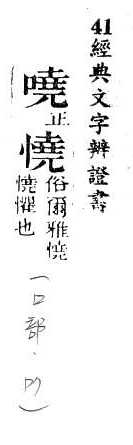 41經典文字辨證書
嘵正
憢俗爾雅憢
憢懼也
(口部.)